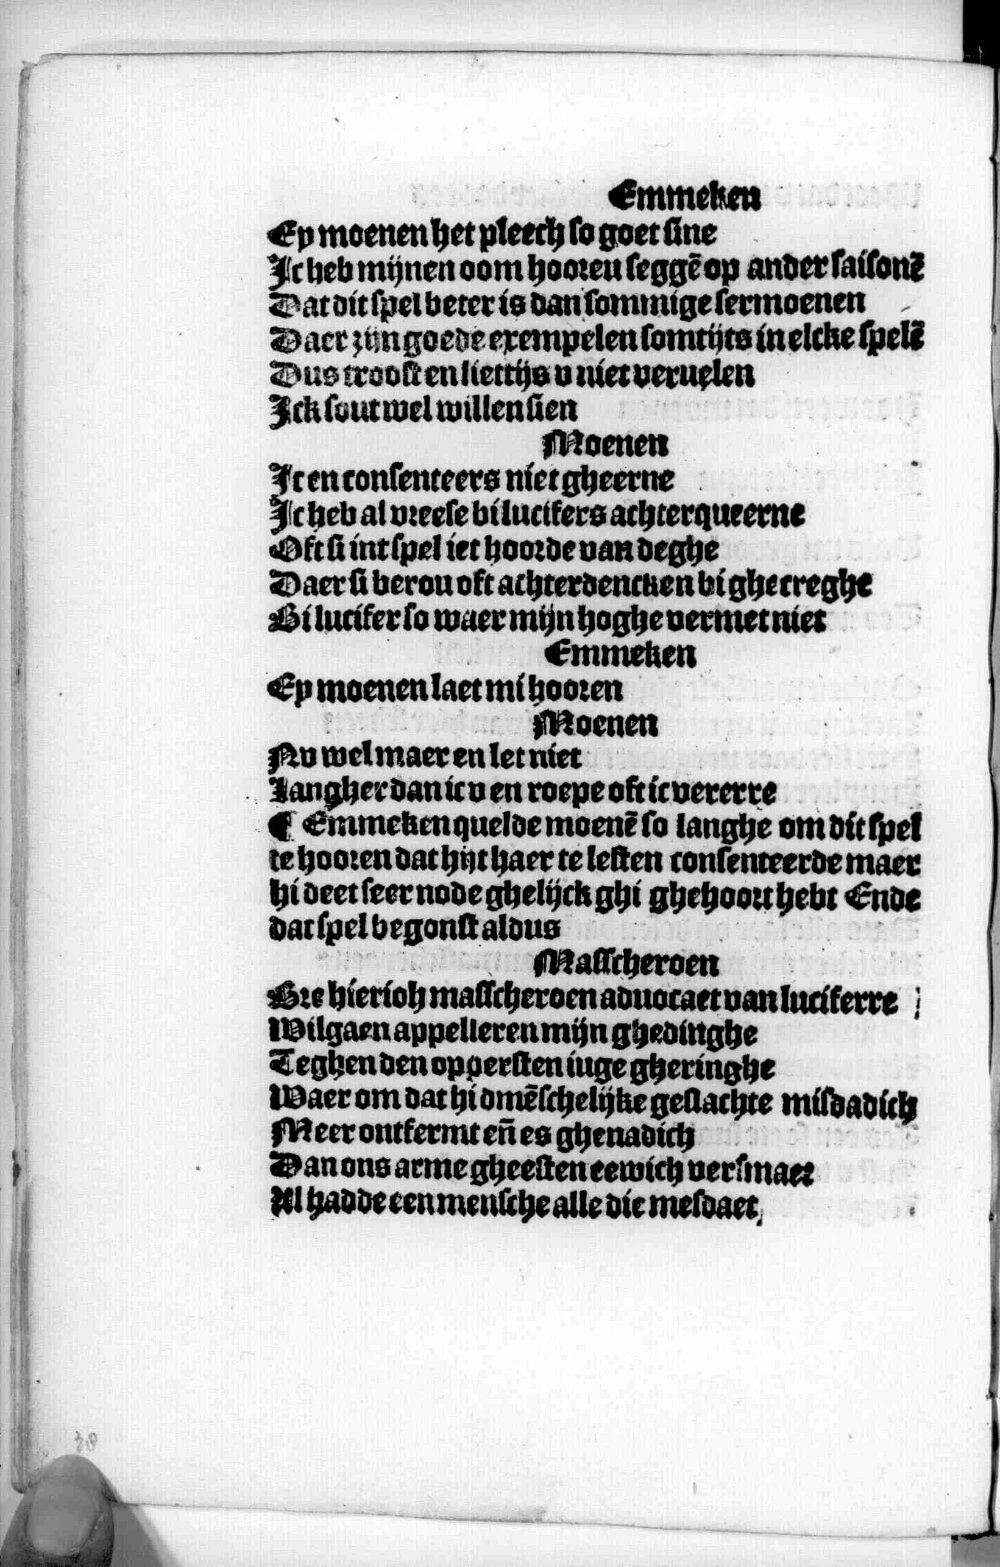 Emmeken
Ey moenen het pleech so goet sine
Jc heb mijnen oom hooreu seggē op ander saisonē
Dat dit spel beter is dan sommige sermoenen
Daer zijn goede exempelen somtijts in elcke spelē
Dus troost en liettijs v niet veruelen
Jck sout wel willen sien
Moenen
Jc en consenteers niet gheerne
Jc heb al vreese bi lucifers achterqueerne
Oft si int spel iet hoorde van deghe
Daer si berou oft achterdencken bi ghecreghe
Bi lucifer so waer mijn hoghe vermet niet
Emmeken
Ey moenen laet mi hooren
Moenen
Nv wel maer en let niet
Langher dan ic v en roepe oft ic vererre
¶ Emmeken quelde moenē so langhe om dit spel
te hooren dat hijt haer te lesten consenteerde maer
hi deet seer node ghelijck ghi ghehoort hebt Ende
dat spel begonst aldus
Masscheroen
Bre hier ioh masscheroen aduocaet van luciferre
Wil gaen appelleren mijn ghedinghe
Teghen den oppersten iuge gheringhe
Waer om dat hi dmēschelijke geslachte misdadich
Meer ontfermt eñ es ghenadich
Dan ons arme gheesten eewich versmaet
Al hadde een mensche alle die mesdaet
38